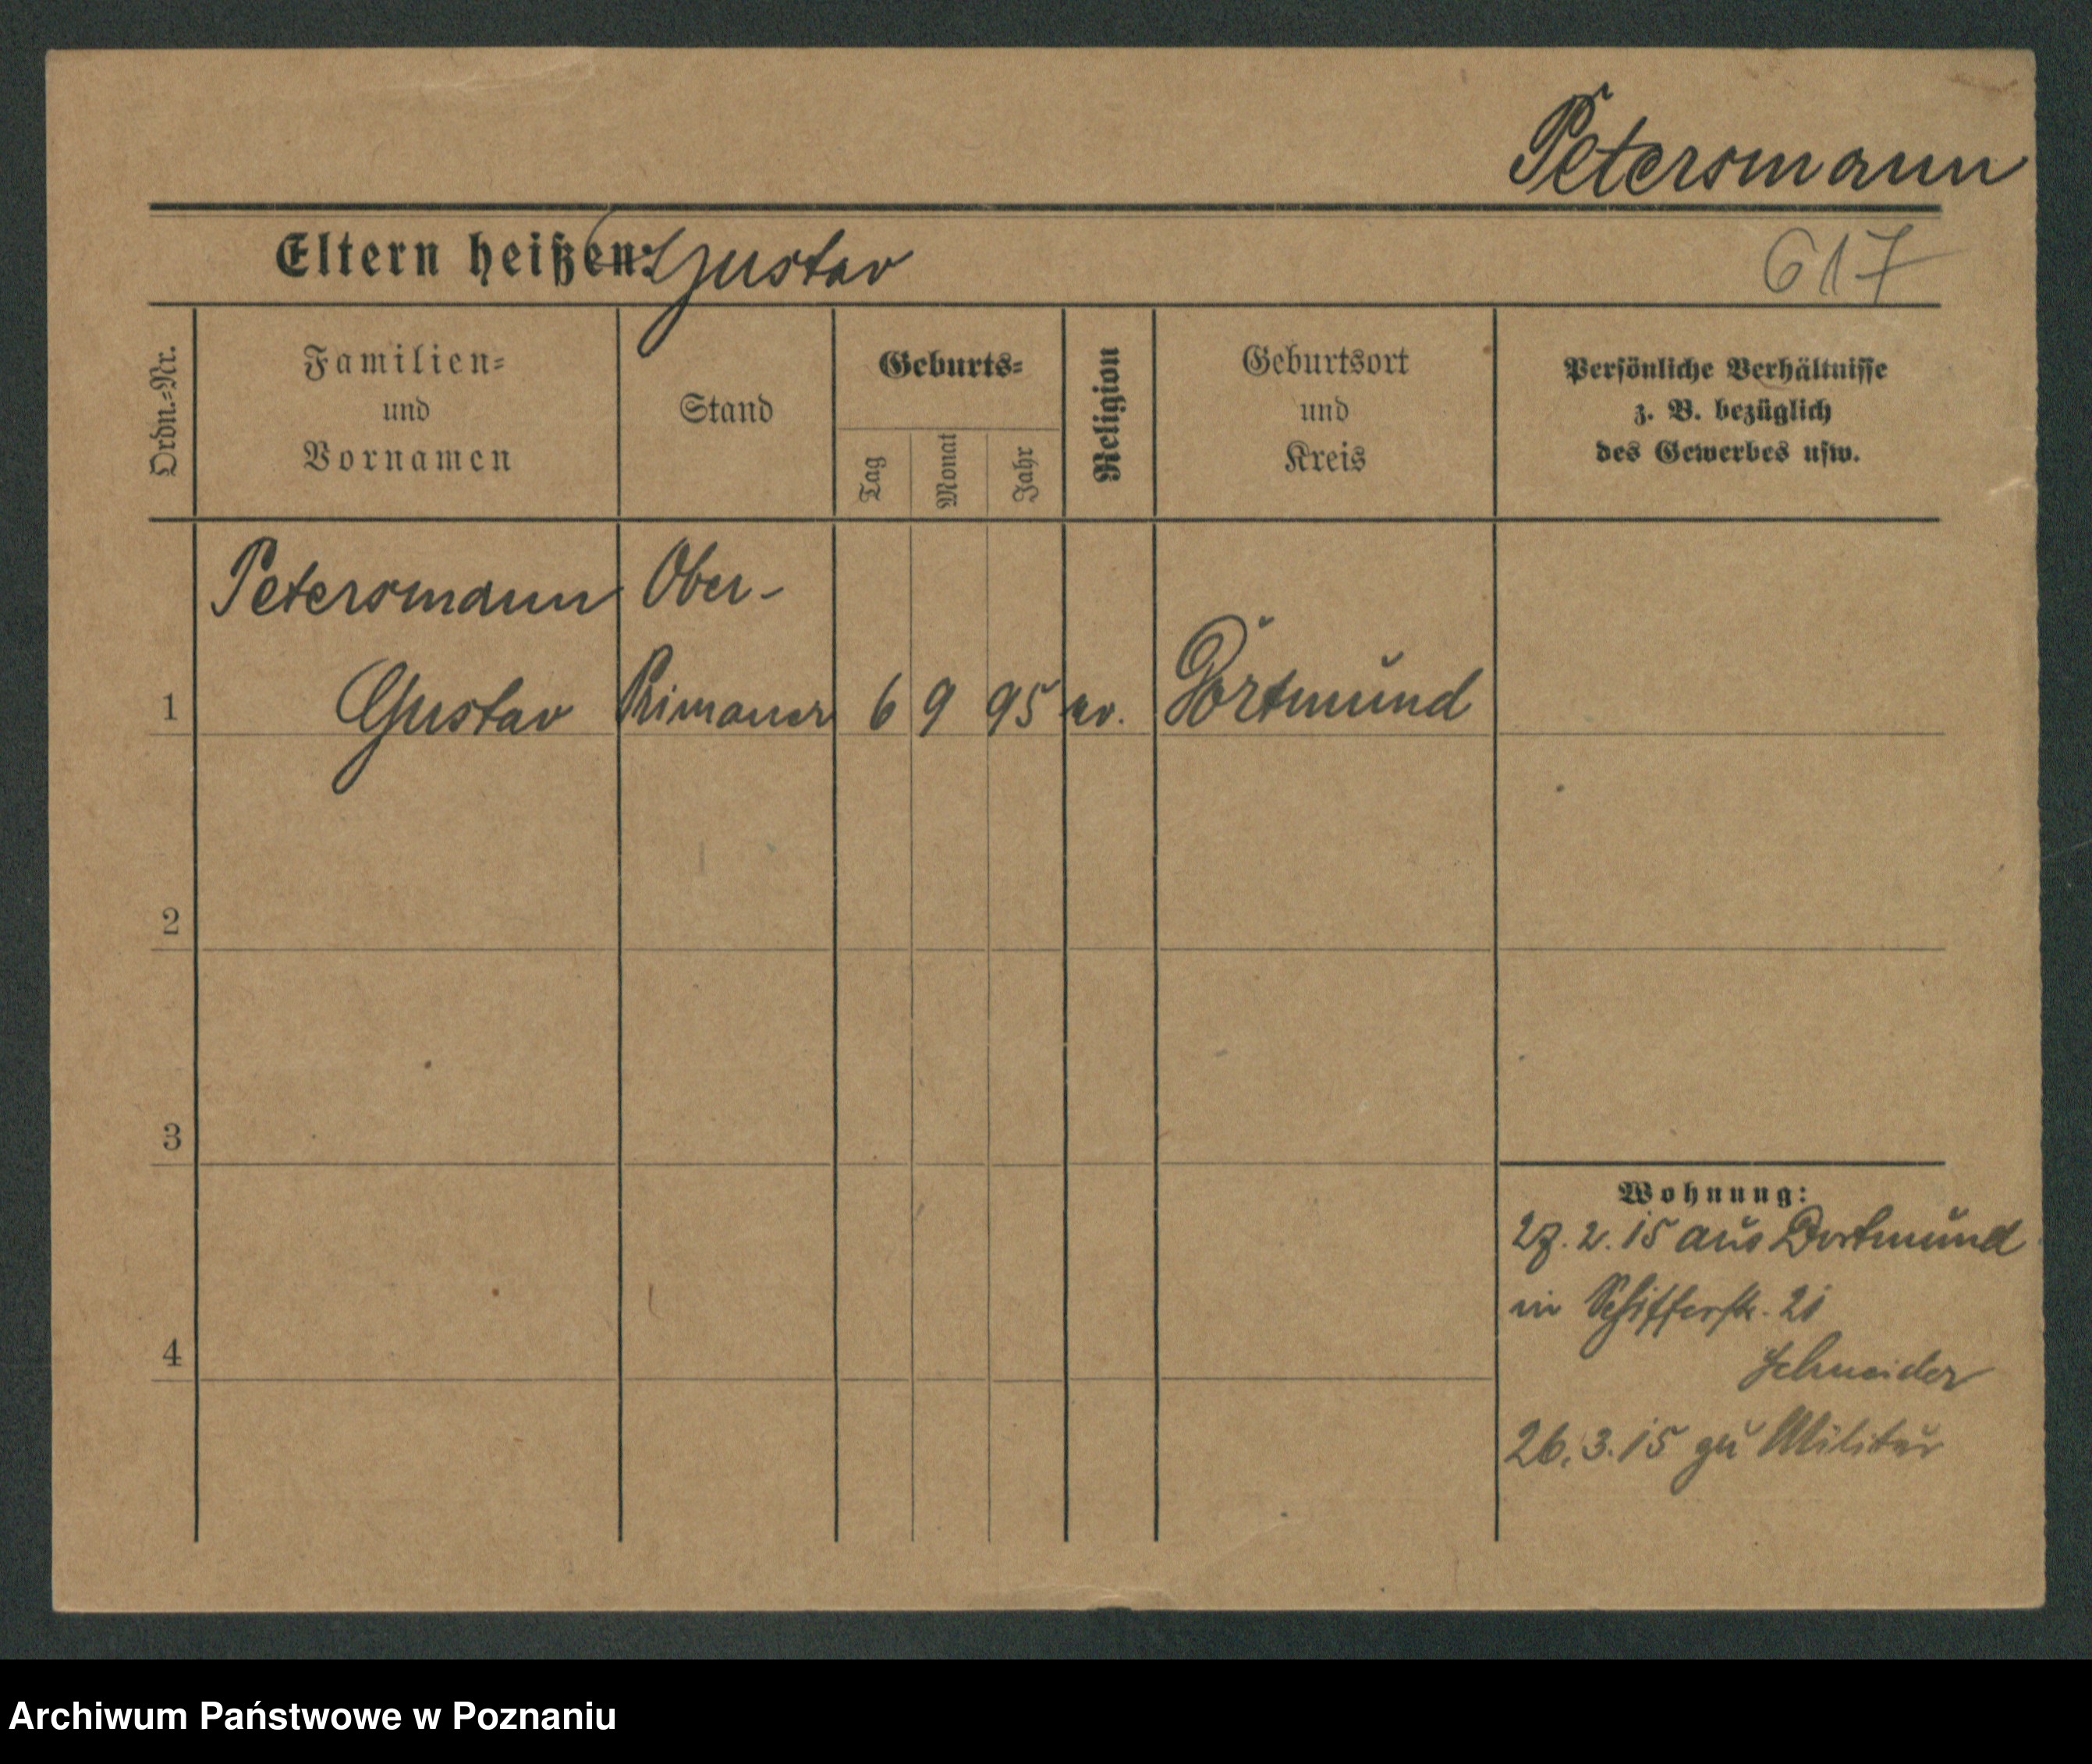 Petersmann
Eltern heißen: Gustav
617
Ordn.-Nr.
Familien-
und
Vornamen
Stand
Geburts-
Tag
Monat
Jahr
Religion
Geburtsort
und
Kreis
Persönliche Verhältnisse
z. B. bezüglich
des Gewerbes usw.
Petersmann Ober-
1 Gustav Primaner 6 9 95 ev. Dortmund
2
3
4
Wohnung:
27. 2. 15 aus Dortmund
in Schifferstr. 21
Schneider
26. 3. 15 zu Militär
Archiwum Państwowe w Poznaniu